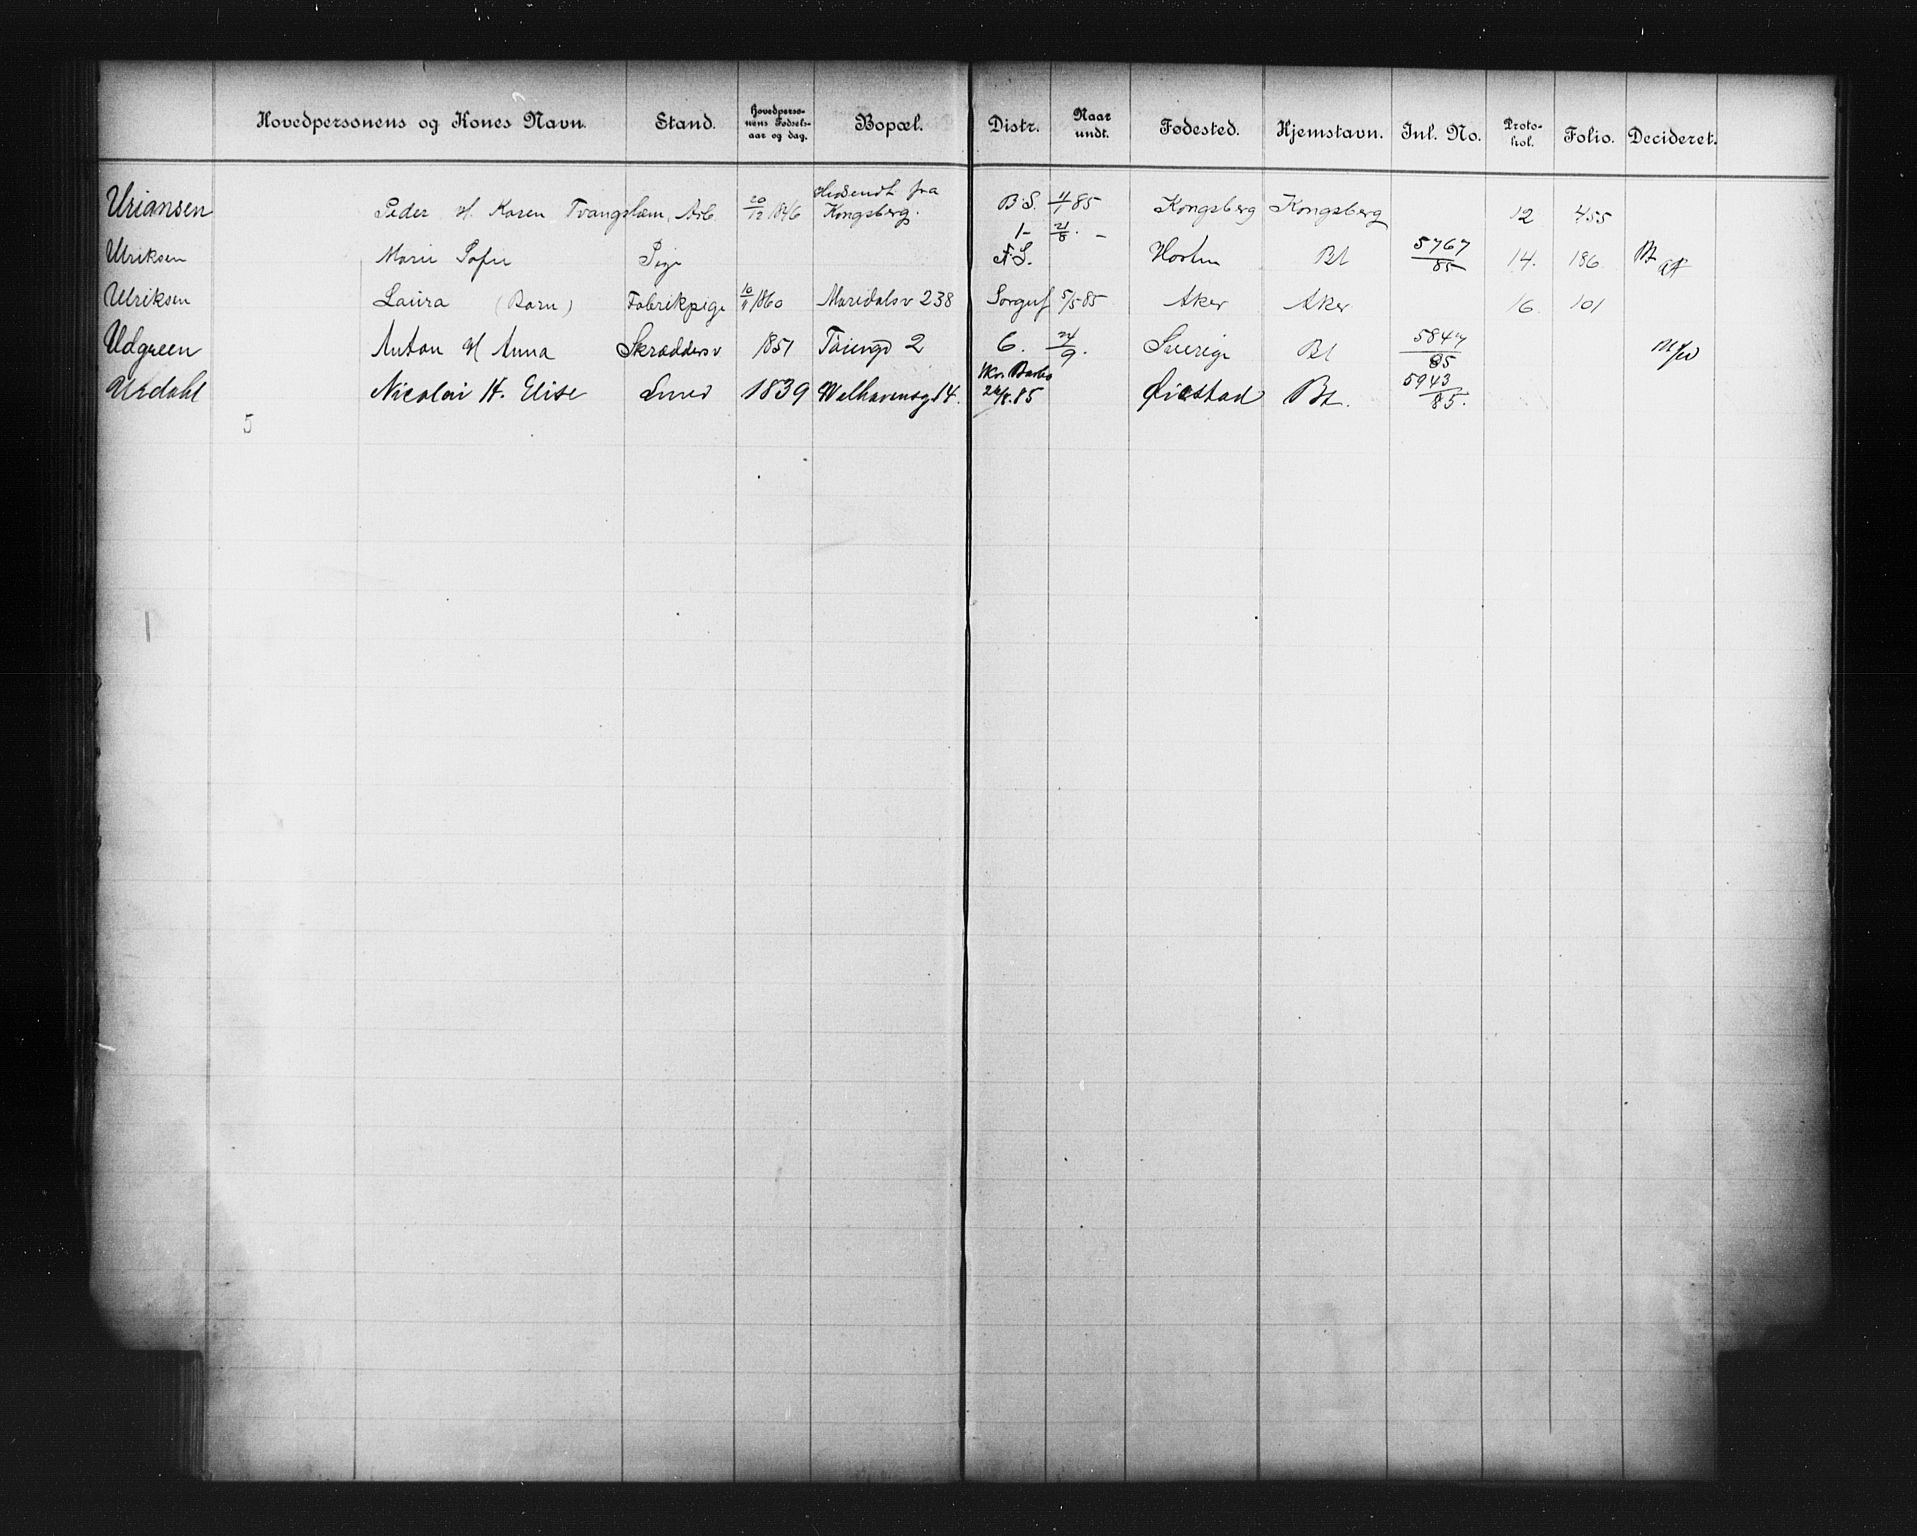 Hovedpersonens og Kones Navn. Stand. Hovedpersonens Fødselsaar og dag. Bopæl. Distr. Naar undt. Fødested. Hjemstavn. Inl. No. Protokol. Folio. Decideret.
Uriansen Peder H. Karen Tvangslem, Arb. 20/12 1846 Hidsendt fra Kongsberg. B.S. 4/1 85 Kongsberg Kongsberg 12 455
1- 21/8 -
Ulriksen Marie Sofie Pige A.S. Bt 5767/85 14. 186
Ulriksen Laura (Barn) Fabrikpige 10/11 1860 Maridalsv 238 5/5 85 Aker Aker 16. 101
Udgreen Anton H Anna Skræddersv 1851 Tøiengd 2 6. 24/9. Sverige Bt 5847/85
Urdahl Nicolai H. Elise Smed 1839 Welhavensg 14. 24/8.85 Øiestad Bt. 5943/85.
5